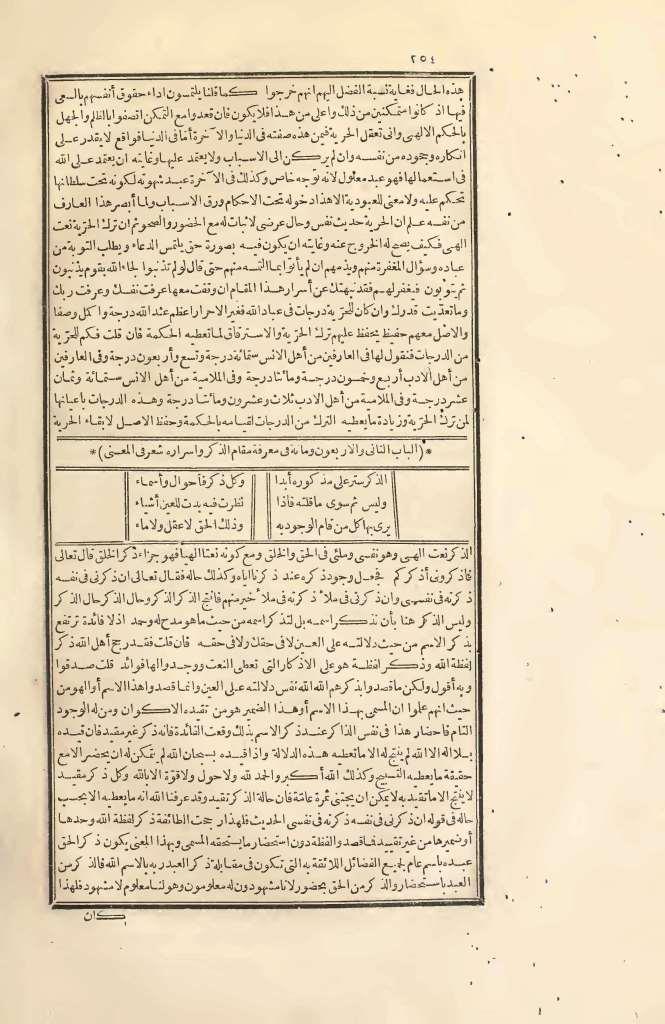 ٢٥٤
هذه الحال فغاية نسبة الفضل اليهم انهم خرجوا كما قلنا يلتمسون اداء حقوق أنفسهم بالسعى
فيها اذ كانوا متمكنين من ذلك واعلى من هذا فلا يكون فان قعدوا مع التمكن اتصفوا بالظلم والجهل
بالحكم الالهى وانى تعقل الحرية فيمن هذه صفته فى الدنيا والآخرة أما فى الدنيا فواقع لا يقدر على
انكاره وجحوده من نفسه وان لم يركن الى الاسباب ولا يعتمد عليها وغايته ان يعتمد على الله
فى استعمالها فهو عبد معلول لانه توجه خاص وكذلك فى الآخرة عبد شهوته لكونه تحت سلطانها
تحكم عليه ولا معنى للعبودية الا هذا دخوله تحت الاحكام ورق الاسباب ولما أبصر هذا العارف
من نفسه علم ان الحرية حديث نفس وحال عرضى لا ثبات له مع الحضور والصحو ثم ان ترك الحرية نعت
الهى فكيف يصح له الخروج عنه وغايته ان يكون فيه بصورة حق يلتمس الدعاء ويطلب التوبة من
عباده وسؤال المغفرة منهم ويذمهم ان لم يأتوا بما التمسه منهم حتى قال لو لم تذنبوا لجاء الله بقوم يذنبون
ثم يتوبون فيغفر لهم فقد نبهتك عن أسرار هذا المقام ان وقفت معها عرفت نفسك وعرفت ربك
وما تعديت قدرك وان كان للحرية درجات فى عباد الله فغير الاحرار اعظم عند الله درجة واكمل وصفا
والاصل معهم حفيظ يحفظ عليهم ترك الحرية والاسترقاق لما تعطيه الحكمة فان قلت فكم للحرية
من الدرجات فنقول لها فى العارفين من أهل الانس ستمائة درجة وتسع وأربعون درجة وفى العارفين
من أهل الادب أربع وخمسون درجة ومائتا درجة وفى الملامية من أهل الانس ستمائة وثمان
عشر درجة وفى الملامية من أهل الادب ثلاث وعشرون ومائتا درجة وهذه الدرجات باعيانها
لمن ترك الحرية وزيادة ما يعطيه الترك من الدرجات لقيامه بالحكمة وحفظ الاصل لابقاء الحرية
*(الباب الثانى والاربعون ومائة فى معرفة مقام الذكر واسراره شعر فى المعنى)*
الذكر ستر على مذكوره أبدا وكل ذكر فأحوال وأسماء
وليس ثم سوى ما قلته فاذا نظرت فيه بدت للعين أشياء
يرى بها كل من قام الوجود به وذلك الحق لا عقل ولا ماء
الذكر نعت الهى وهو نفسى وملئى فى الحق والخلق ومع كونه نعتا الهيا فهو جزاء ذكر الخلق قال تعالى
فاذكرونى أذكركم فجعل وجود ذكره عند ذكرنا اياه وكذلك حاله فقال تعالى ان ذكرنى فى نفسه
ذكرته فى نفسى وان ذكرنى فى ملأ ذكرته فى ملأ خير منهم فانتج الذكر الذكر وحال الذكر حال الذكر
وليس الذكر هنا بأن تذكر اسمه بل لتذكر اسمه من حيث ما هو مدح له وحمد اذ لا فائدة ترتفع
بذكر الاسم من حيث دلالته على العين لا فى حقك ولا فى حقه فان قلت فقد رجح أهل الله ذكر
لفظة الله وذكر لفظة هو على الاذكار التى تعطى النعت ووجدوا لها فوائد قلت صدقوا
وبه أقول ولكن ما قصدوا بذكرهم الله الله نفس دلالته على العين وانما قصدوا هذا الاسم أو الهو من
حيث انهم علموا ان المسمى بهذا الاسم أو هذا الضمير هو من تقيده الاكوان ومن له الوجود
التام فاحضار هذا فى نفس الذاكر عند ذكر الاسم بذلك وقعت الفائدة فانه ذكر غير مقيد فان قيده
بلا اله الا الله لم ينتج له الا ما تعطيه هذه الدلالة واذا قيده بسبحان الله لم يتمكن له ان يحضر الا مع
حقيقة ما يعطيه التسبيح وكذلك الله أكبر والحمد لله ولا حول ولا قوة الا بالله وكل ذكر مقيد
لا ينتج الا ما تقيد به لا يمكن ان يجتنى ثمرة عامة فان حالة الذكر تقيده وقد عرفنا الله انه ما يعطيه الا بحسب
حاله فى قوله ان ذكرنى فى نفسه ذكرته فى نفسى الحديث فلهذا رجحت الطائفة ذكر لفظة الله وحدها
أو ضميرها من غير تقييد فما قصدوا لفظة دون استحضار ما يستحقه المسمى وبهذا المعنى يكون ذكر الحق
عبده باسم عام لجميع الفضائل اللائقة به التى تكون فى مقابلة ذكر العبد ربه بالاسم الله فالذكر من
العبد باستحضار والذكر من الحق بحضور لانا مشهودون له معلومون وهو لنا معلوم لا مشهود فلهذا
كان